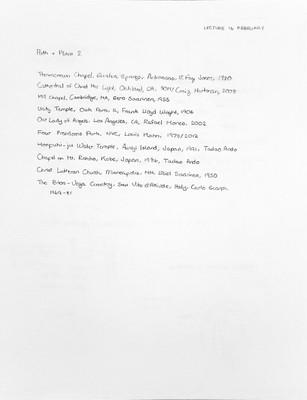 LECTURE 16 FEBRUARY
Path + Place 2
Thorncrown Chapel, Eureka Springs, Arkansas, E. Fay Jones, 1980
Cathedral of Christ the Light, Oakland, CA, SOM/Craig Hartman, 2008
MIT Chapel, Cambridge, MA, Eero Saarinen, 1955
Unity Temple, Oak Park, IL, Frank Lloyd Wright, 1906
Our Lady of Angels, Los Angeles, CA, Rafael Moneo, 2002
Four Freedoms Park, NYC, Louis Kahn, 1973/2012
Honpuku-ji Water Temple, Awaji Island, Japan, 1991, Tadao Ando
Chapel on Mt. Rokko, Kobe, Japan, 1986, Tadao Ando
Christ Lutheran Church, Minneapolis, MN, Eliel Saarinen, 1950
The Brion-Vega Cemetery, San Vito d'Altivole, Italy, Carlo Scarpa